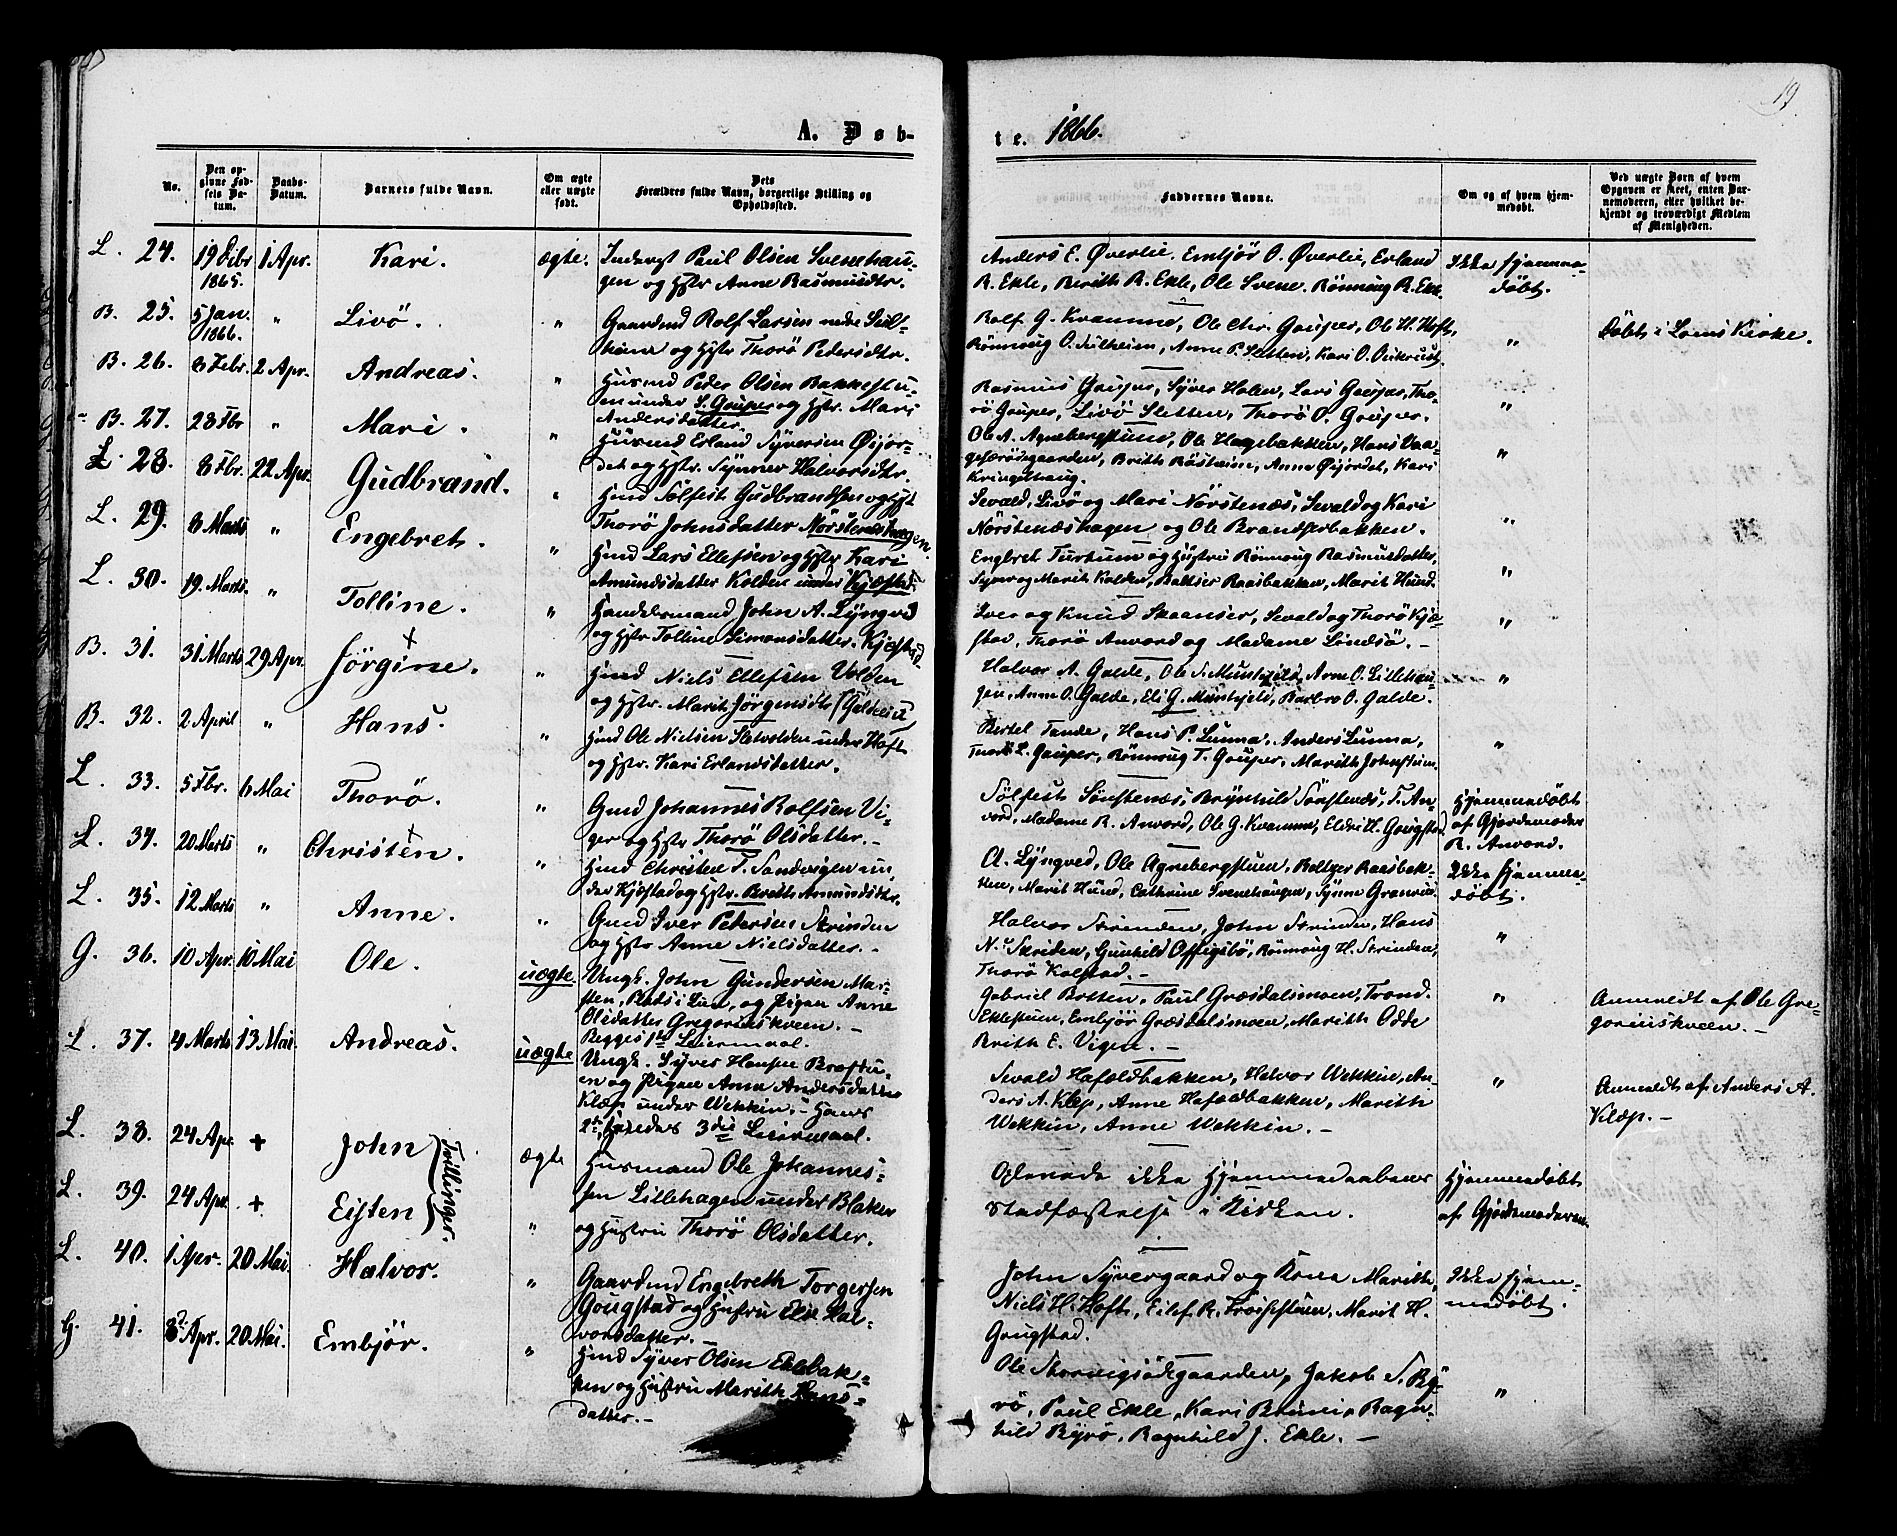 A. Døb-
te. 1866.
19
No.
Den op-
givne Fød-
sels Da-
tum.
Daabs-
Datum.
Barnets fulde Navn.
Om ægte
eller uægte
født.
Dets
Forældres fulde Navn, borgerlige Stilling og
Opholdssted.
Faddernes Navne.
Om og af hvem hjem-
medøbt.
Ved uægte Børn af hvem
Opgaven er skeet, enten Bar-
nemoderen, eller hvilket be-
kjendt og troværdigt Medlem
af Menigheden.
L. 24. 19 Dcbr 1865. 1 Apr. Kari. ægte. Inderst Paul Olsen Svenehau-
gen og Hstr Anne Rasmusdtr.
Anders E. Øverlie, Embjør O. Øverlie, Erland
R. Ekle, Berith R. Ekle, Ole Svene. Rønnoug R. Ekle.
Ikke hjemme-
døbt.
B. 25. 5 Jan. 1866. " Livö. " Gaardmd Rolf Larsen nedre Sul-
heim og Hstr Thorö Pedersdtr.
Rolf G. Kvamme, Ole Chr. Gaupar, Ole H. Hoft,
Rønnoug O. Sulheim, Anne P. Sletten, Kari O.
"
Døbt i Loms Kirke.
B. 26. 3 Febr. 2 Apr. Andreas. " Husmd Peder Olsen Bakkestu-
en under S. Gaupar og Hstr. Mari
Andersdatter.
Rasmus Gaupar, Syver Holen, Lars Gaupar, Tho-
rö Gaupar, Livö Sletten, Thorö O. Gaupar.
"
B. 27. 28 Fbr " Mari. " Husmd Erland Syversen Øijor-
det og Hstr. Synnev Halvorsdtr.
Ole A. Agnebergstuen, Ole Hagebakken, Hans Vaa-
gesærødegaarden, Brith Røsheim, Anne Øijordet, Kari
Kringelhaug.
"
L. 28. 8 Fbr. 22 Apr. Gudbrand. " Hmd Sölfest Gudbrandsen og Hst
Thorö Johnsdatter Nørstenæshagen.
Sevald, Livö og Mari Nörstenæs, Sevald og Kari
Nörstenæshagen og Ole Brandserbakken.
"
L. 29. 8 Marts " Engebret. " Hmd Lars Ellefsen og Hstr Kari
Amundsdatter Kolden under Kjæstad.
Engbret Turtum og Hustru Rønnoug Rasmusdatter,
Synnv og Marit Kolden, Baltser Raasbakken, Marit Hund.
"
L. 30. 19. Marts. " Tolline. " Handelsmand John A. Lyngved
og Hstr Tolline Simonsdatter. Kjæstad
Iver og Knud Skaanser, Sevald og Thorö Kjæ-
stad, Thorö Anvord og Madame Lindsö. -
"
B. 31. 31 Marts 29 Apr. Jørgine. " Hmd Niels Ellefsen Volden
og Hstr. Marit Jørgensdtr (Galdeiu)
Halvor A. Galde, Ole S. Munkjeld, Anne O. Lillehau-
gen, Anne O. Galde, Eli G. Munkjeld, Barbro O. Galde.
"
B. 32. 2 April " Hans. " Hmd Ole Nielsen Sletvolden under Hoft
og Hstr. Kari Erlandsdatter.
Bertel Tande, Hans P. Lunna, Anders Lunna,
Thora L. Gaupar, Rønnoug T. Gaupar, Marith Johnstuen.
"
L. 33. 5 Fbr. 6 Mai Thorö. " Gmd Johannes Rolfsen Vi-
ger og Hstr Thorö Olsdatter. -
Sölfest Sønstenæs, Brynhild Sønstenæs, T. An-
vord, Madame R. Anvord, Ole G. Kvamme, Eldri H. Gougstad.
Hjemmedøbt
af Gjordemoder
R. Anvord.
L. 34. 20 Marts " Christen. " Hmd Christen T. Sandvigen un-
der Kjæstad og Hstr. Brith Amundsdtr.
A. Lyngved, Ole Agnebergstuen, Baltzer Raasbak-
ken, Marit Hund, Cathrine Svenehaugen, Synnv
Ikke hjemme-
døbt.
L. 35. 12 Marts " Anne. " Gmd Iver Petersen Skrinden
og Hstr Anne Nielsdatter. -
Halvor Skrinden, John Skrinden, Hans
N. Skriden, Gunhild Offigsbö, Rønnoug H. Skrinden,
Thorö Kolstad. -
"
G. 36. 10 Apr. 10 Mai Ole. uægte. Ungk. John Gundersen Mar-
sten, Plads i Lom, og Pigen Anne
Olsdatter Gregoriuskveen. -
Begges 1te Leiermaal.
Gabriel Botten, Paul Græsdalsmoen, Trond
Eklestuen, Embjör Græsdalsmoen, Marith Odde
Brith E. Vigen. -
"
Anmeldt af Ole Gre-
goriuskveen. -
L. 37. 4 Marts 13 Mai. Andreas. uægte Ungk. Syver Hansen Bræstu-
en og Pigen Anne Andersdatter
Klæp under Wekkin, - Hans
2det, hendes 3die Leiermaal.
Sevald Hafældbakken, Halvor Wekkin, An-
ders A. Klep, Anne Hafældbakken, Marith
Wekkin, Anne Wekkin. -
"
Anmeldt af Anders A.
Klæp. -
L. 38. 24 Apr. + John Tvillinger. ægte Husmand Ole Johannes-
sen Lillehagen under Blaker
og Hustru Thorö Olsdatter.
Ølenede ikke Hjemmedaabens
Stadfæstelse i Kirken.
Hjemmedøbt
af Gjordemoderen.
L. 39. 24 Apr. + Eisten "
L. 40. 1 Apr. 20 Mai. Halvor. " Gaardmd Engebreth Torgersen
Gougstad og Hustru Eli Hal-
vorsdatter. -
John Syvergaard og Kone Marith,
Niels H. Hoft, Eilef R. Froisestuen, Marit H.
Gougstad.
Ikke hjem-
medøbt.
G. 41. 8de Apr. 20 Mai. Embjör. " Hmd Syver Olsen Eklebak-
ken og Hustru Marith Hans-
datter. -
Ole Storvigsødegaarden, Jakob S. By-
rö, Paul Ekle, Kari Bruni, Ragn-
hild Byrö, Ragnhild J. Ekle. -
"